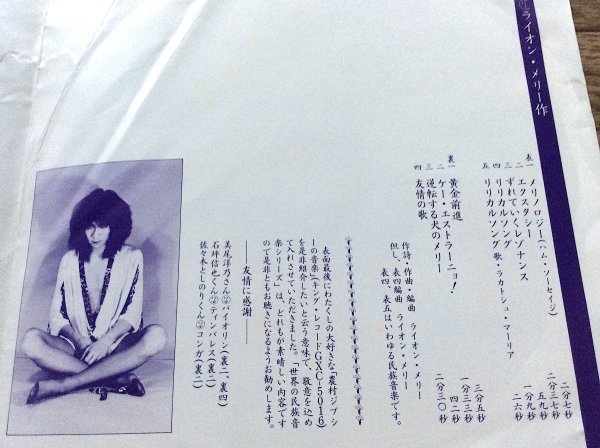 ライオン・メリー作
表一 メリノロジー(ハム・ソーセイジ) 二分七秒
二 エクスタシー 二分三七秒
三 ずれていくレゾナンス 五九秒
四 リリカルソング 一分九秒
五 リリカルソング 歌・ラカートシュ・マーリア 二六秒
裏一 黄金前進 三分五秒
二 ケー・エストラーニョ! 四二秒
三 逆転する犬のメリー 一分三三秒
四 友情の歌 二分三〇秒
作詩・作曲・編曲 ライオン・メリー
但し、表四編曲 ライオン・メリー
表四、表五はいわゆる民族音楽です。
表面最後にわたくしの大好きな「農村ジプシ
ーの音楽」(キング・レコードGXC-5016)
を是非紹介したいと云う意味で、敬意を込め
て入れさせていただきました。「世界の民族音
楽シリーズ」は、どれもが素晴しい内容です
ので是非ともお聴きになるようお勧めします。
――友情に感謝――
美尾洋乃さん バイオリン(裏二、裏四)
石坪信也くん ティンバレス(裏二)
佐々木としのりくん コンガ(裏二)